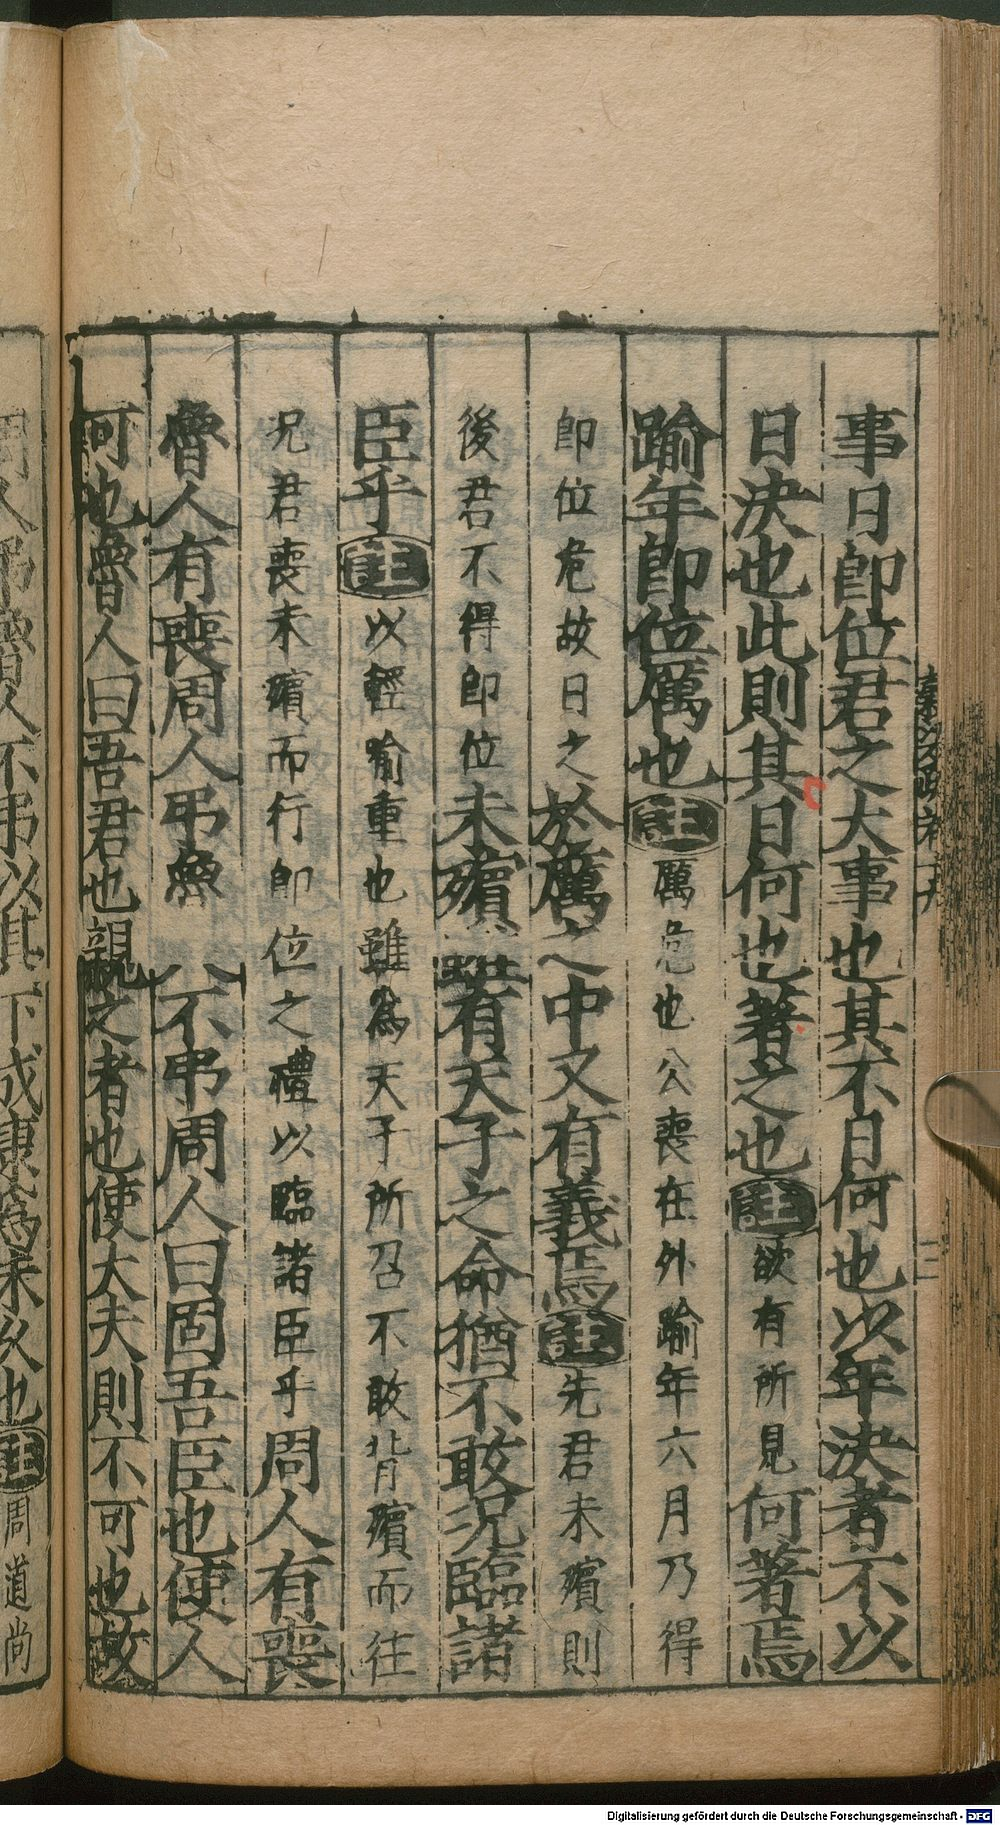 事日即位君之大事也其不日何也以年決者不以
日決也此則其日何也著之也註欲有所見何著焉
踰年即位厲也註厲危也公喪在外踰年六月乃得
即位危故日之於厲之中又有義焉註先君未殯則
後君不得即位未殯雖有天子之命猶不敢況臨諸
臣乎註以輕喻重也雖為天子所召不敢背殯而往
況君喪未殯而行即位之禮以臨諸臣乎周人有喪
魯人有喪周人弔魯人不弔周人曰固吾臣也使人
可也魯人曰吾君也親之者也使大夫則不可也故
周人弔魯人不弔以其下成康為未久也註周道尚
Digitalisierung gefördert durch die Deutsche Forschungsgemeinschaft - DFG